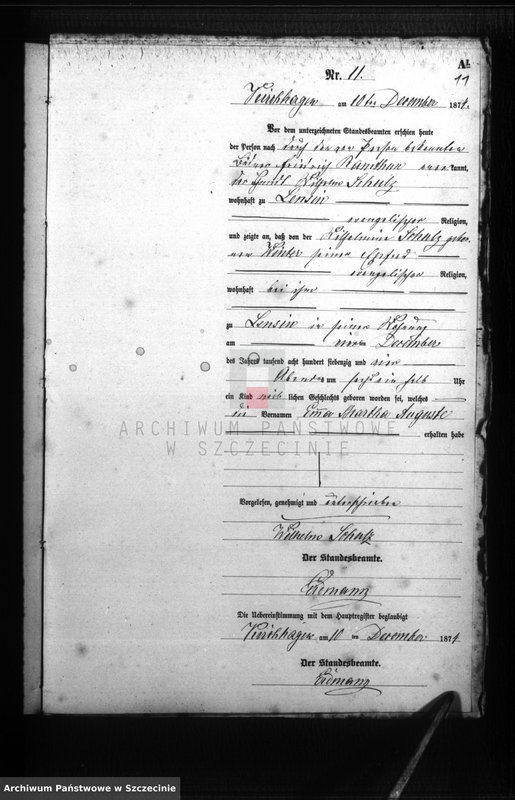 A1.
Nr. 11.
11
Kirchhagen am 10ten December 1874.
Vor dem unterzeichneten Standesbeamten erschien heute
der Persönlichkeit nach durch den von Person bekannten
Büdner Friedrich Ramthun anerkannt,
der Wilhelm Schulz
wohnhaft zu Lensin
evangelischer Religion,
und zeigte an, daß von der Wilhelmine Schulz gebo-
renen Winter seiner Ehefrau
evangelischer Religion,
wohnhaft bei ihm
zu Lensin in seiner Wohnung
am vierten December
des Jahres tausend acht hundert siebenzig und vier
Abends um sechs ein halb Uhr
ein Kind weiblichen Geschlechts geboren worden sei, welches
die Vornamen Ema Martha Auguste
erhalten habe
Vorgelesen, genehmigt und unterschrieben
Wilhelm Schulz
Der Standesbeamte.
Die Uebereinstimmung mit dem Hauptregister beglaubigt
Kirchhagen am 10 ten December 1874.
Der Standesbeamte.
ARCHIWUM PAŃSTWOWE
W SZCZECINIE
Archiwum Państwowe w Szczecinie